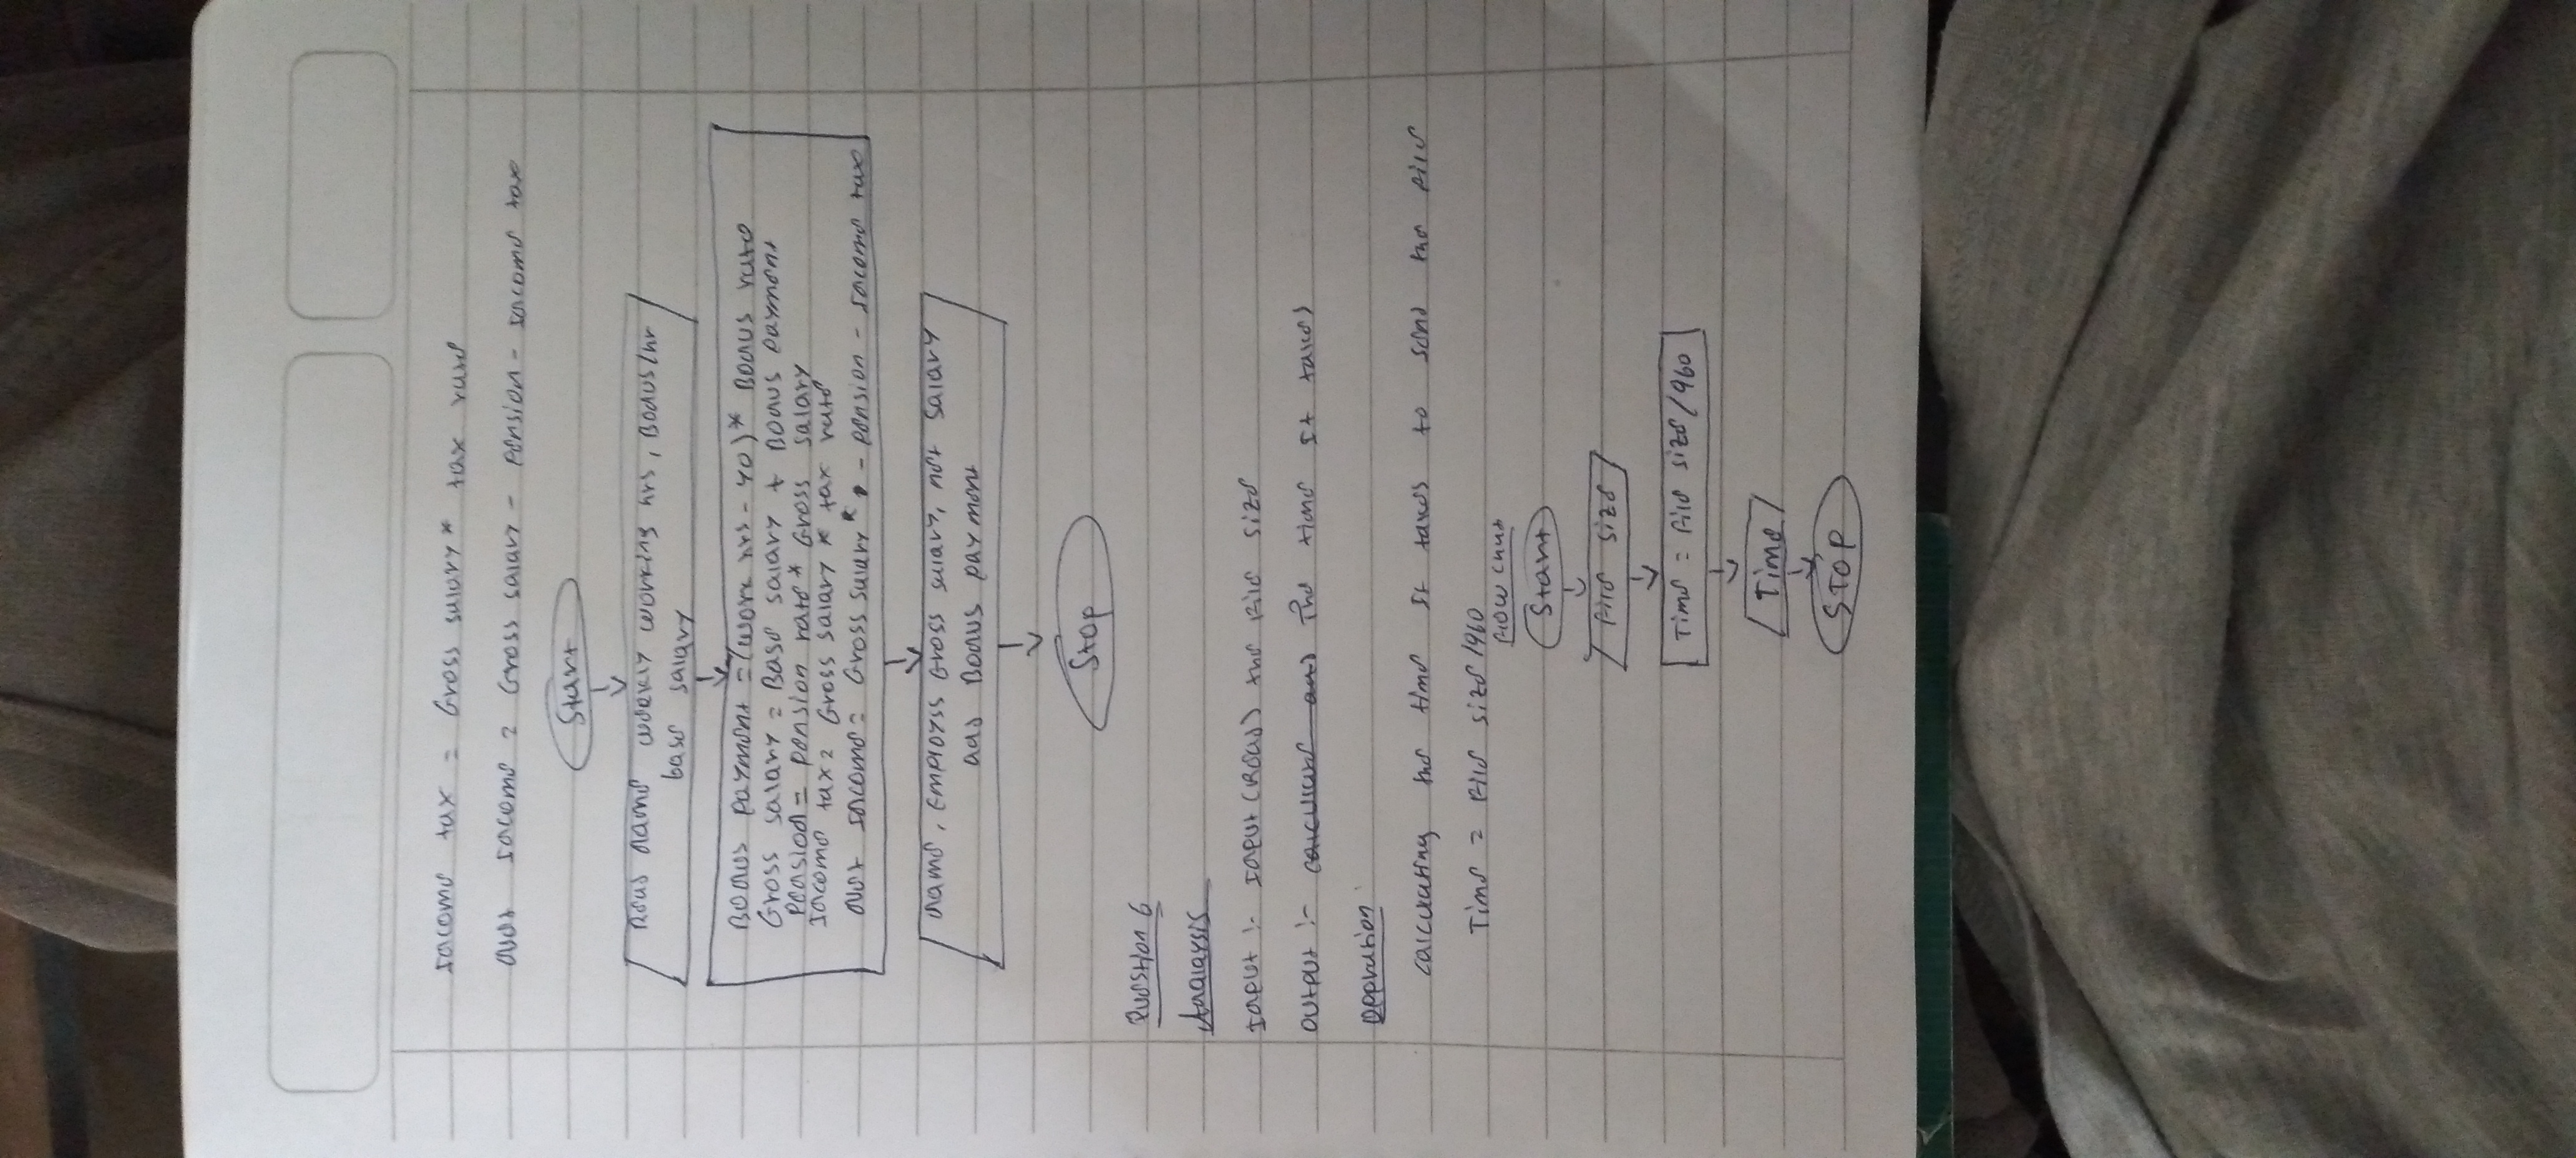 Income tax = Gross salary * tax rate
Net Income = Gross salary - Pension - Income tax
Start
Read name weekly working hrs, Bonus/hr
base salary
Bonus payment = (work hrs - 40) * Bonus rate
Gross salary = Base salary + Bonus payment
Pension = pension rate * Gross salary
Income tax = Gross salary * tax rate
Net Income = Gross salary - pension - Income tax
name, Employee Gross salary, net salary
and Bonus payment
Stop
Question 6
Analaysis
Input :- Input (Read) the File size
Output :- calculate and The time It takes
Opration
calculating the time It takes to send the file
Time = File size / 960
Flow chart
Start
File size
Time = File size / 960
Time
STOP